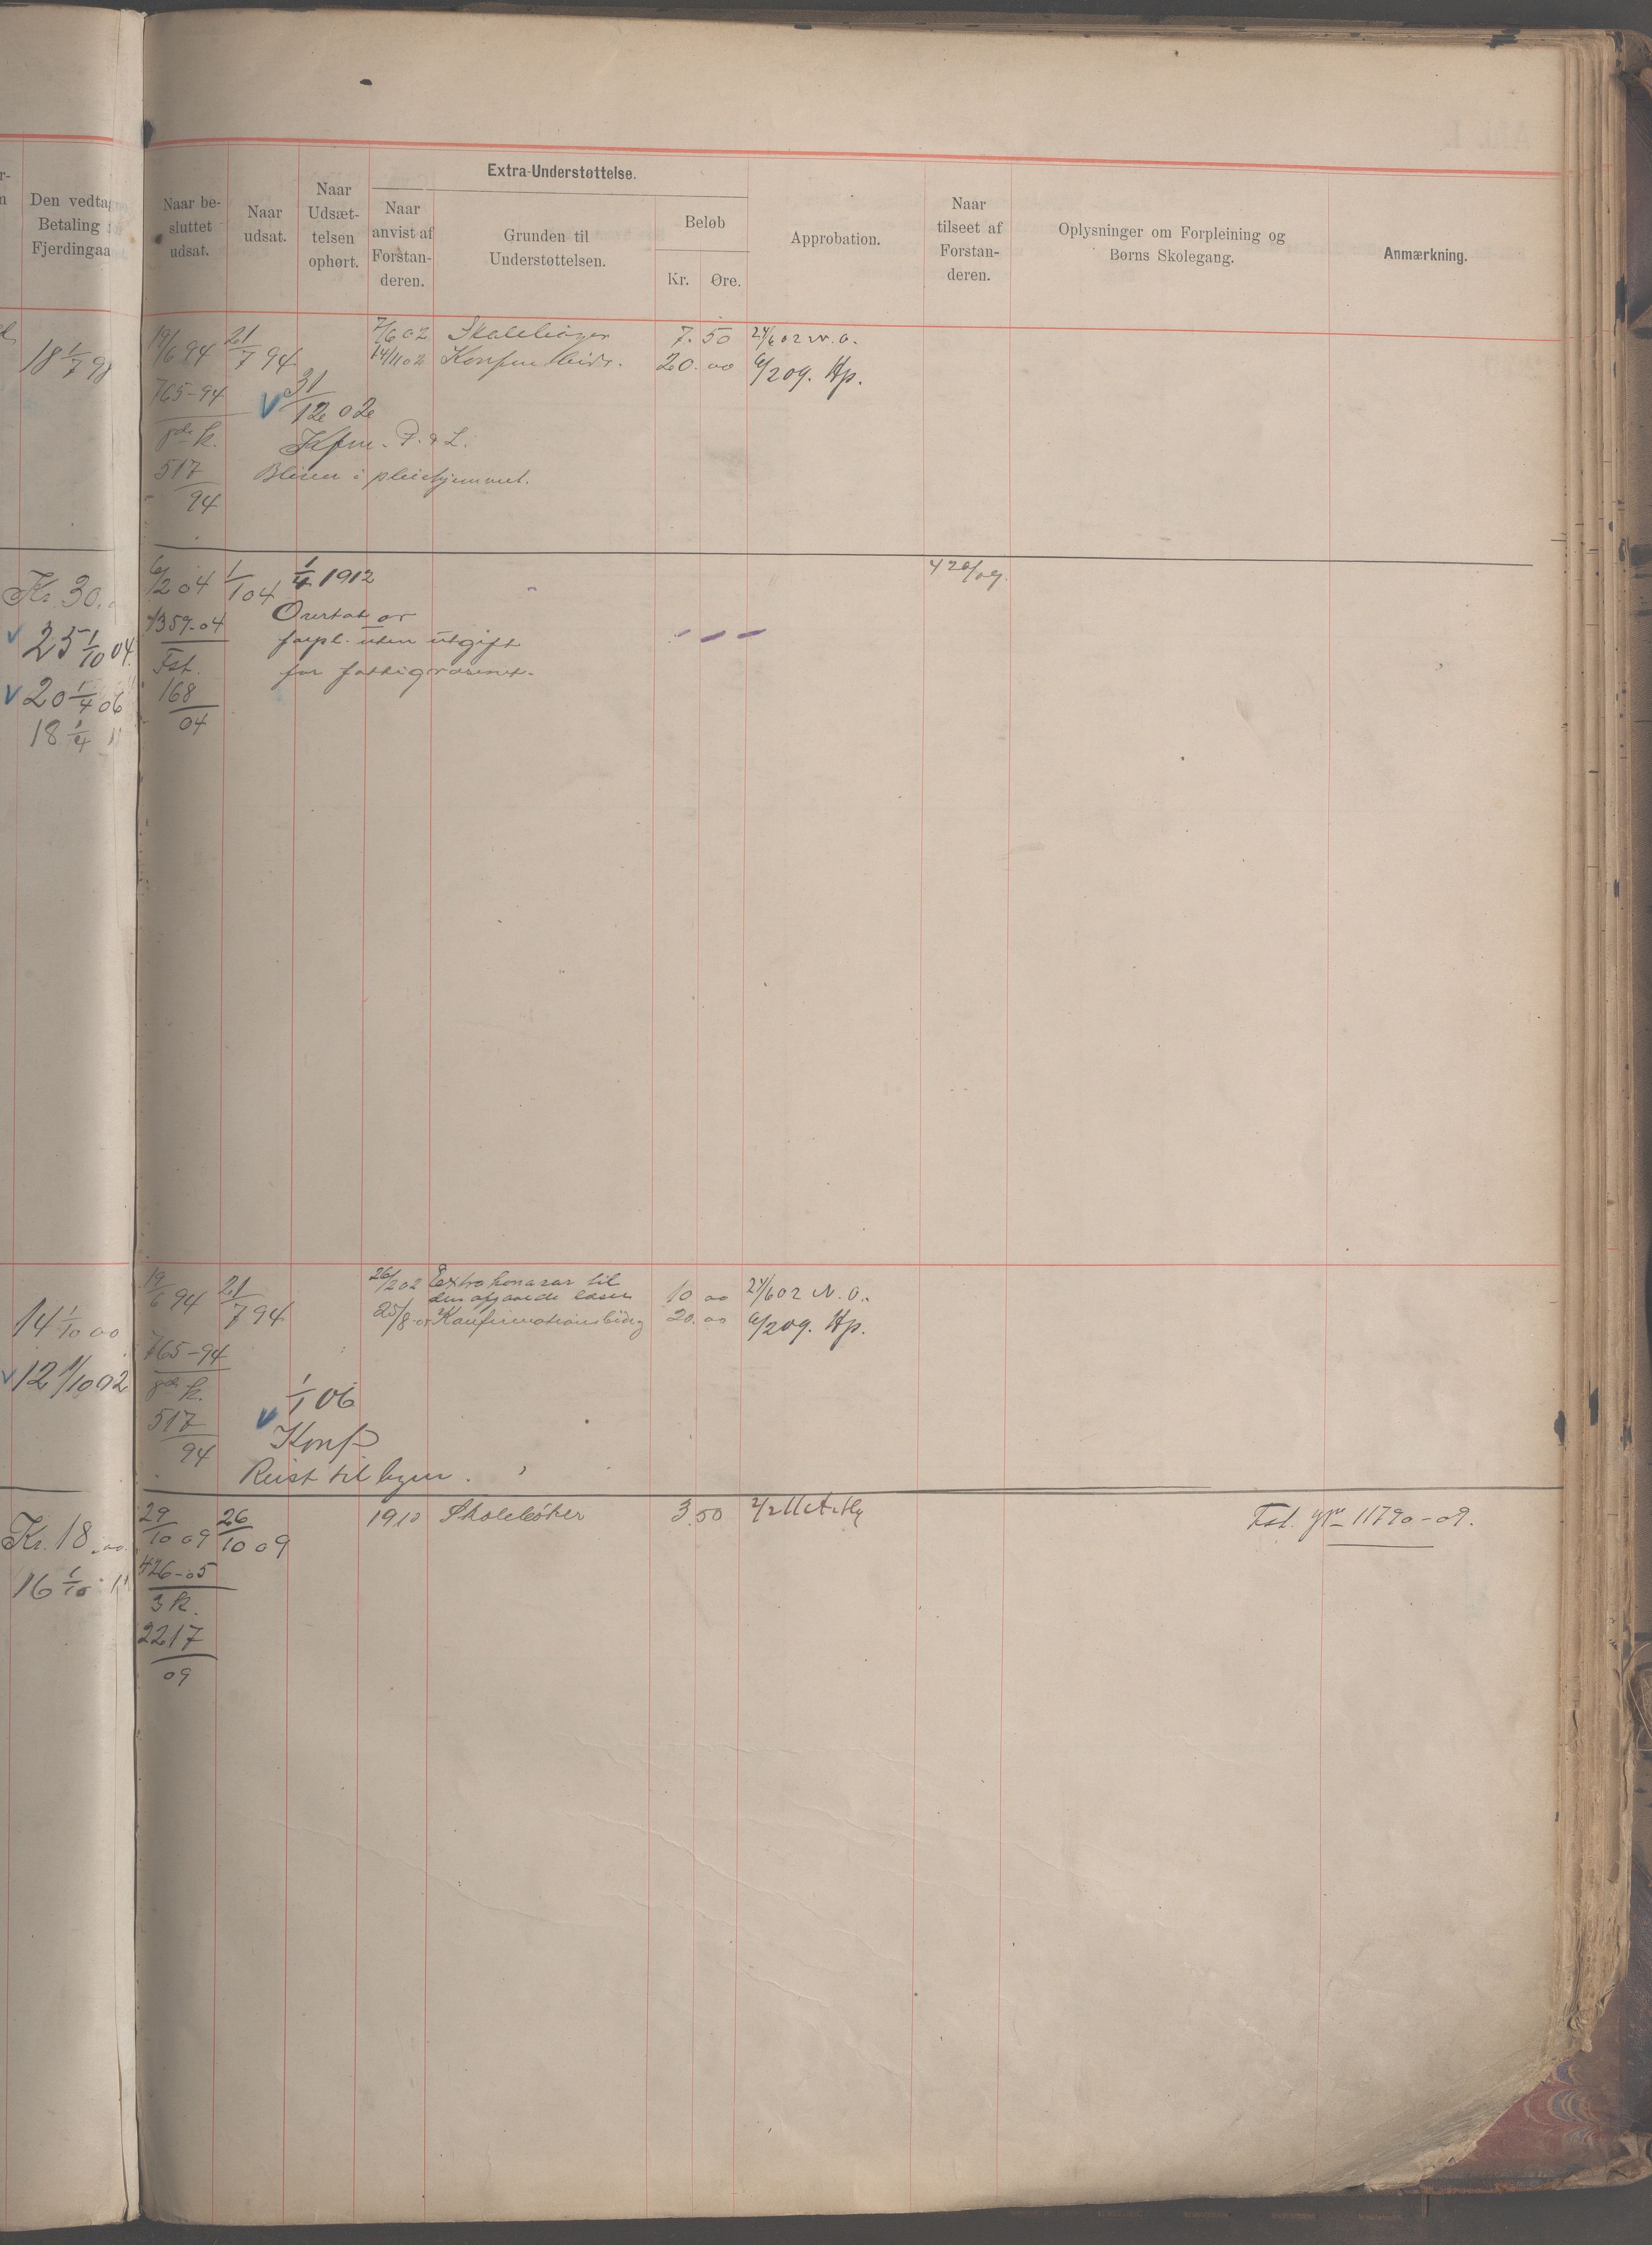 Den vedta
Betaling
Fjerdingaa
Naar be-
sluttet
udsat.
Naar
udsat.
Naar
Udsæt-
telsen
ophørt.
Extra-Understøttelse.
Naar
anvist af
Forstan-
deren.
Grunden til
Understøttelsen.
Beløb
Kr.
Øre.
Approbation.
Naar
tilseet af
Forstan-
deren.
Oplysninger om Forpleining og
Børns Skolegang.
Anmærkning.
18 1/7 98
19/6 94 21/7 94
7/6 02 Skolebøger 7. 50 24/6 02 N. O.
14/11 02 20. 00 6/2 09. Hp.
765-94
31/12 02
517
94
Bliver i pleiehjemmet.
Kr. 30.
6/2 04 1/1 04 1/4 1912
25 1/10 04
1359-04
Overtat av
forpl. uten utgift
Fst.
for fattigvæsenet.
20 1/4 06
168
04
18 1/4 11
19/6 94 21/7 94
26/2 02 Extrahonorar til
10 00 24/6 02 N. O.
25/8 Konfirmationsbidrg 20. 00 6/2 09. Hp.
14 1/10 00
765-94
12 1/10 02
1/1 06
517
94
Konf
Reist til byen.
Kr. 18.00
29/10 09 26/10 09
1910 Skolebøker 3.50
Fst. 11790-09.
16 1/10 11
426-05
3 k.
2217
09